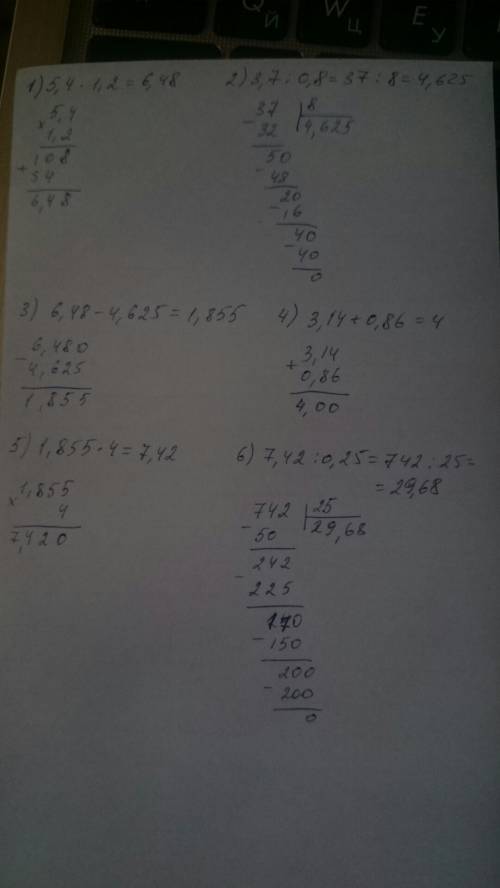 Q Й
W Ц
E У
1) 5,4 · 1,2 = 6,48
× 5,4
1,2
108
+ 54
6,48
2) 3,7 : 0,8 = 37 : 8 = 4,625
- 37 | 8
32 | 4,625
50
- 48
20
- 16
40
- 40
0
3) 6,48 - 4,625 = 1,855
- 6,480
4,625
1,855
4) 3,14 + 0,86 = 4
+ 3,14
0,86
4,00
5) 1,855 · 4 = 7,42
× 1,855
4
7,420
6) 7,42 : 0,25 = 742 : 25 =
= 29,68
- 742 | 25
50 | 29,68
242
- 225
170
- 150
200
- 200
0